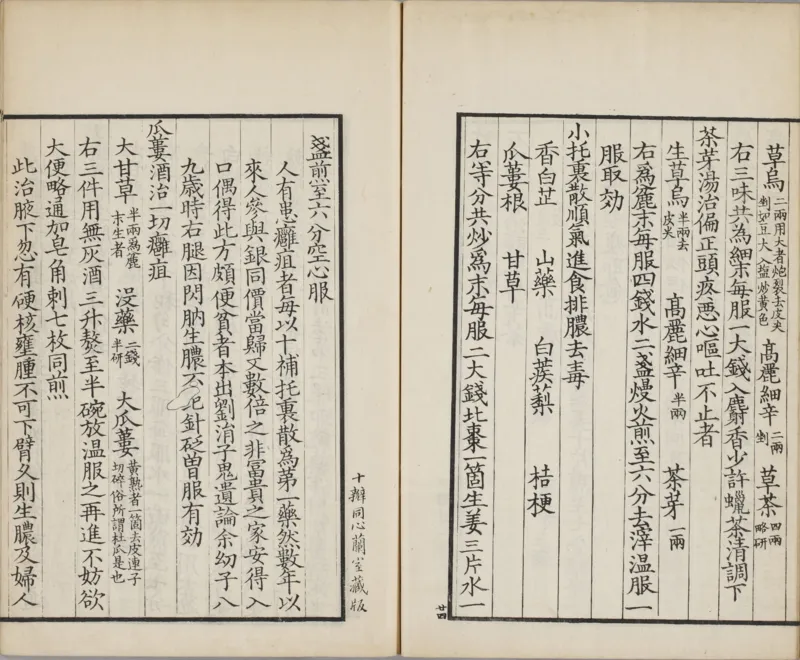 草烏二兩用大者炮裂去皮尖剉如豆大入鹽炒黃色 高麗細辛二兩剉 草茶四兩略研
右三味共為細末每服一大錢入麝香少許蠟茶清調下
茶芽湯治偏正頭疼惡心嘔吐不止者
生草烏半兩去皮尖 高麗細辛半兩 茶芽一兩
右為麁末每服四錢水二盞熳火煎至六分去滓溫服一
服取効
小托裏散順氣進食排膿去毒
香白芷 山藥 白蒺蔾 桔梗
瓜蔞根 甘草
右等分共炒為末每服二大錢北棗一箇生姜三片水一
廿四
十瓣同心蘭室藏版
盞煎至六分空心服
人有患癰疽者每以十補托裏散為第一藥然數年以
來人參與銀同價當歸又數倍之非富貴之家安得入
口偶得此方頗便貧者本出劉涓子鬼遺論余幼子八
九歲時右腿因閃肭生膿云 針砭曽服有効
瓜蔞酒治一切癰疽
大甘草半兩為麁末生者 沒藥二錢半研 大瓜蔞黃熟者一箇去皮連子切碎俗所謂杜瓜是也
右三件用無灰酒三升熬至半碗放溫服之再進不妨欲
大便略通加皂角刺七枚同煎
此治腋下忽有硬核壅腫不可下臂久則生膿及婦人